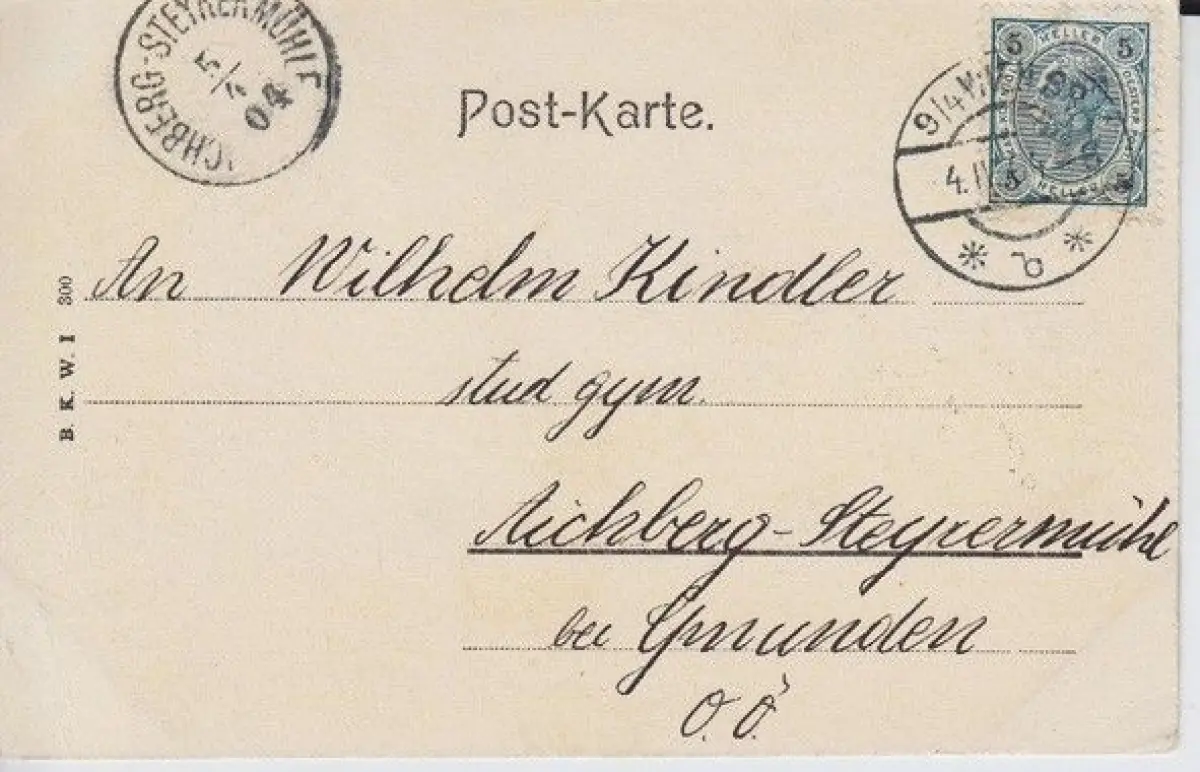 CHBERG-STEYRERMÜHL
5/4
04
Post-Karte.
9/4
4. IV
5 HELLER 5
5 HELLER 5
An Wilhelm Kindler
stud gym.
Aichberg-Steyrermühl
bei Gmunden
O. Ö.
B. K. W. I 300